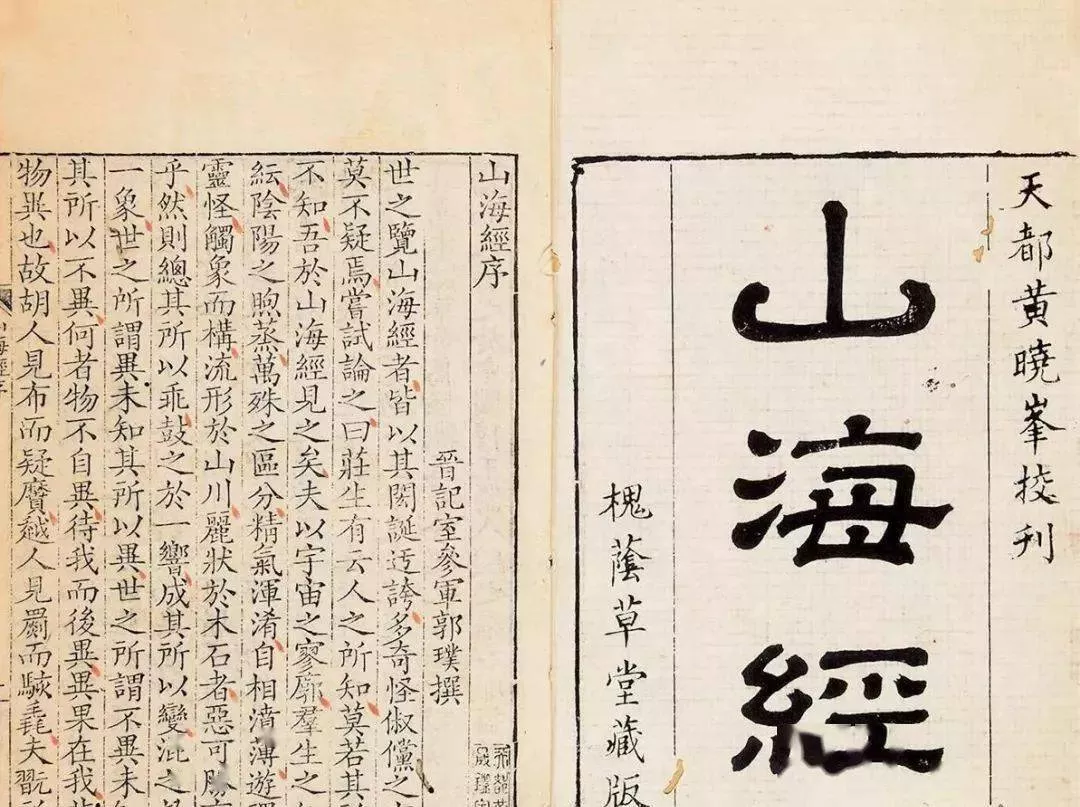 天都黄曉峯挍刊
山海經
槐蔭草堂藏版
山海經序
晉記室參軍郭璞撰
世之覽山海經者皆以其閎誕迂誇多奇怪俶儻之
莫不疑焉嘗試論之曰莊生有云人之所知莫若其
不知吾於山海經見之矣夫以宇宙之寥廓羣生之
紜陰陽之煦蒸萬殊之區分精氣渾淆自相濆薄遊
靈怪觸象而構流形於山川麗狀於木石者惡可勝
乎然則總其所以乖鼓之於一響成其所以變混之
一象世之所謂異未知其所以異世之所謂不異未
其所以不異何者物不自異待我而後異異果在我
物異也故胡人見布而疑黂越人見罽而駭毳夫翫
山海經序